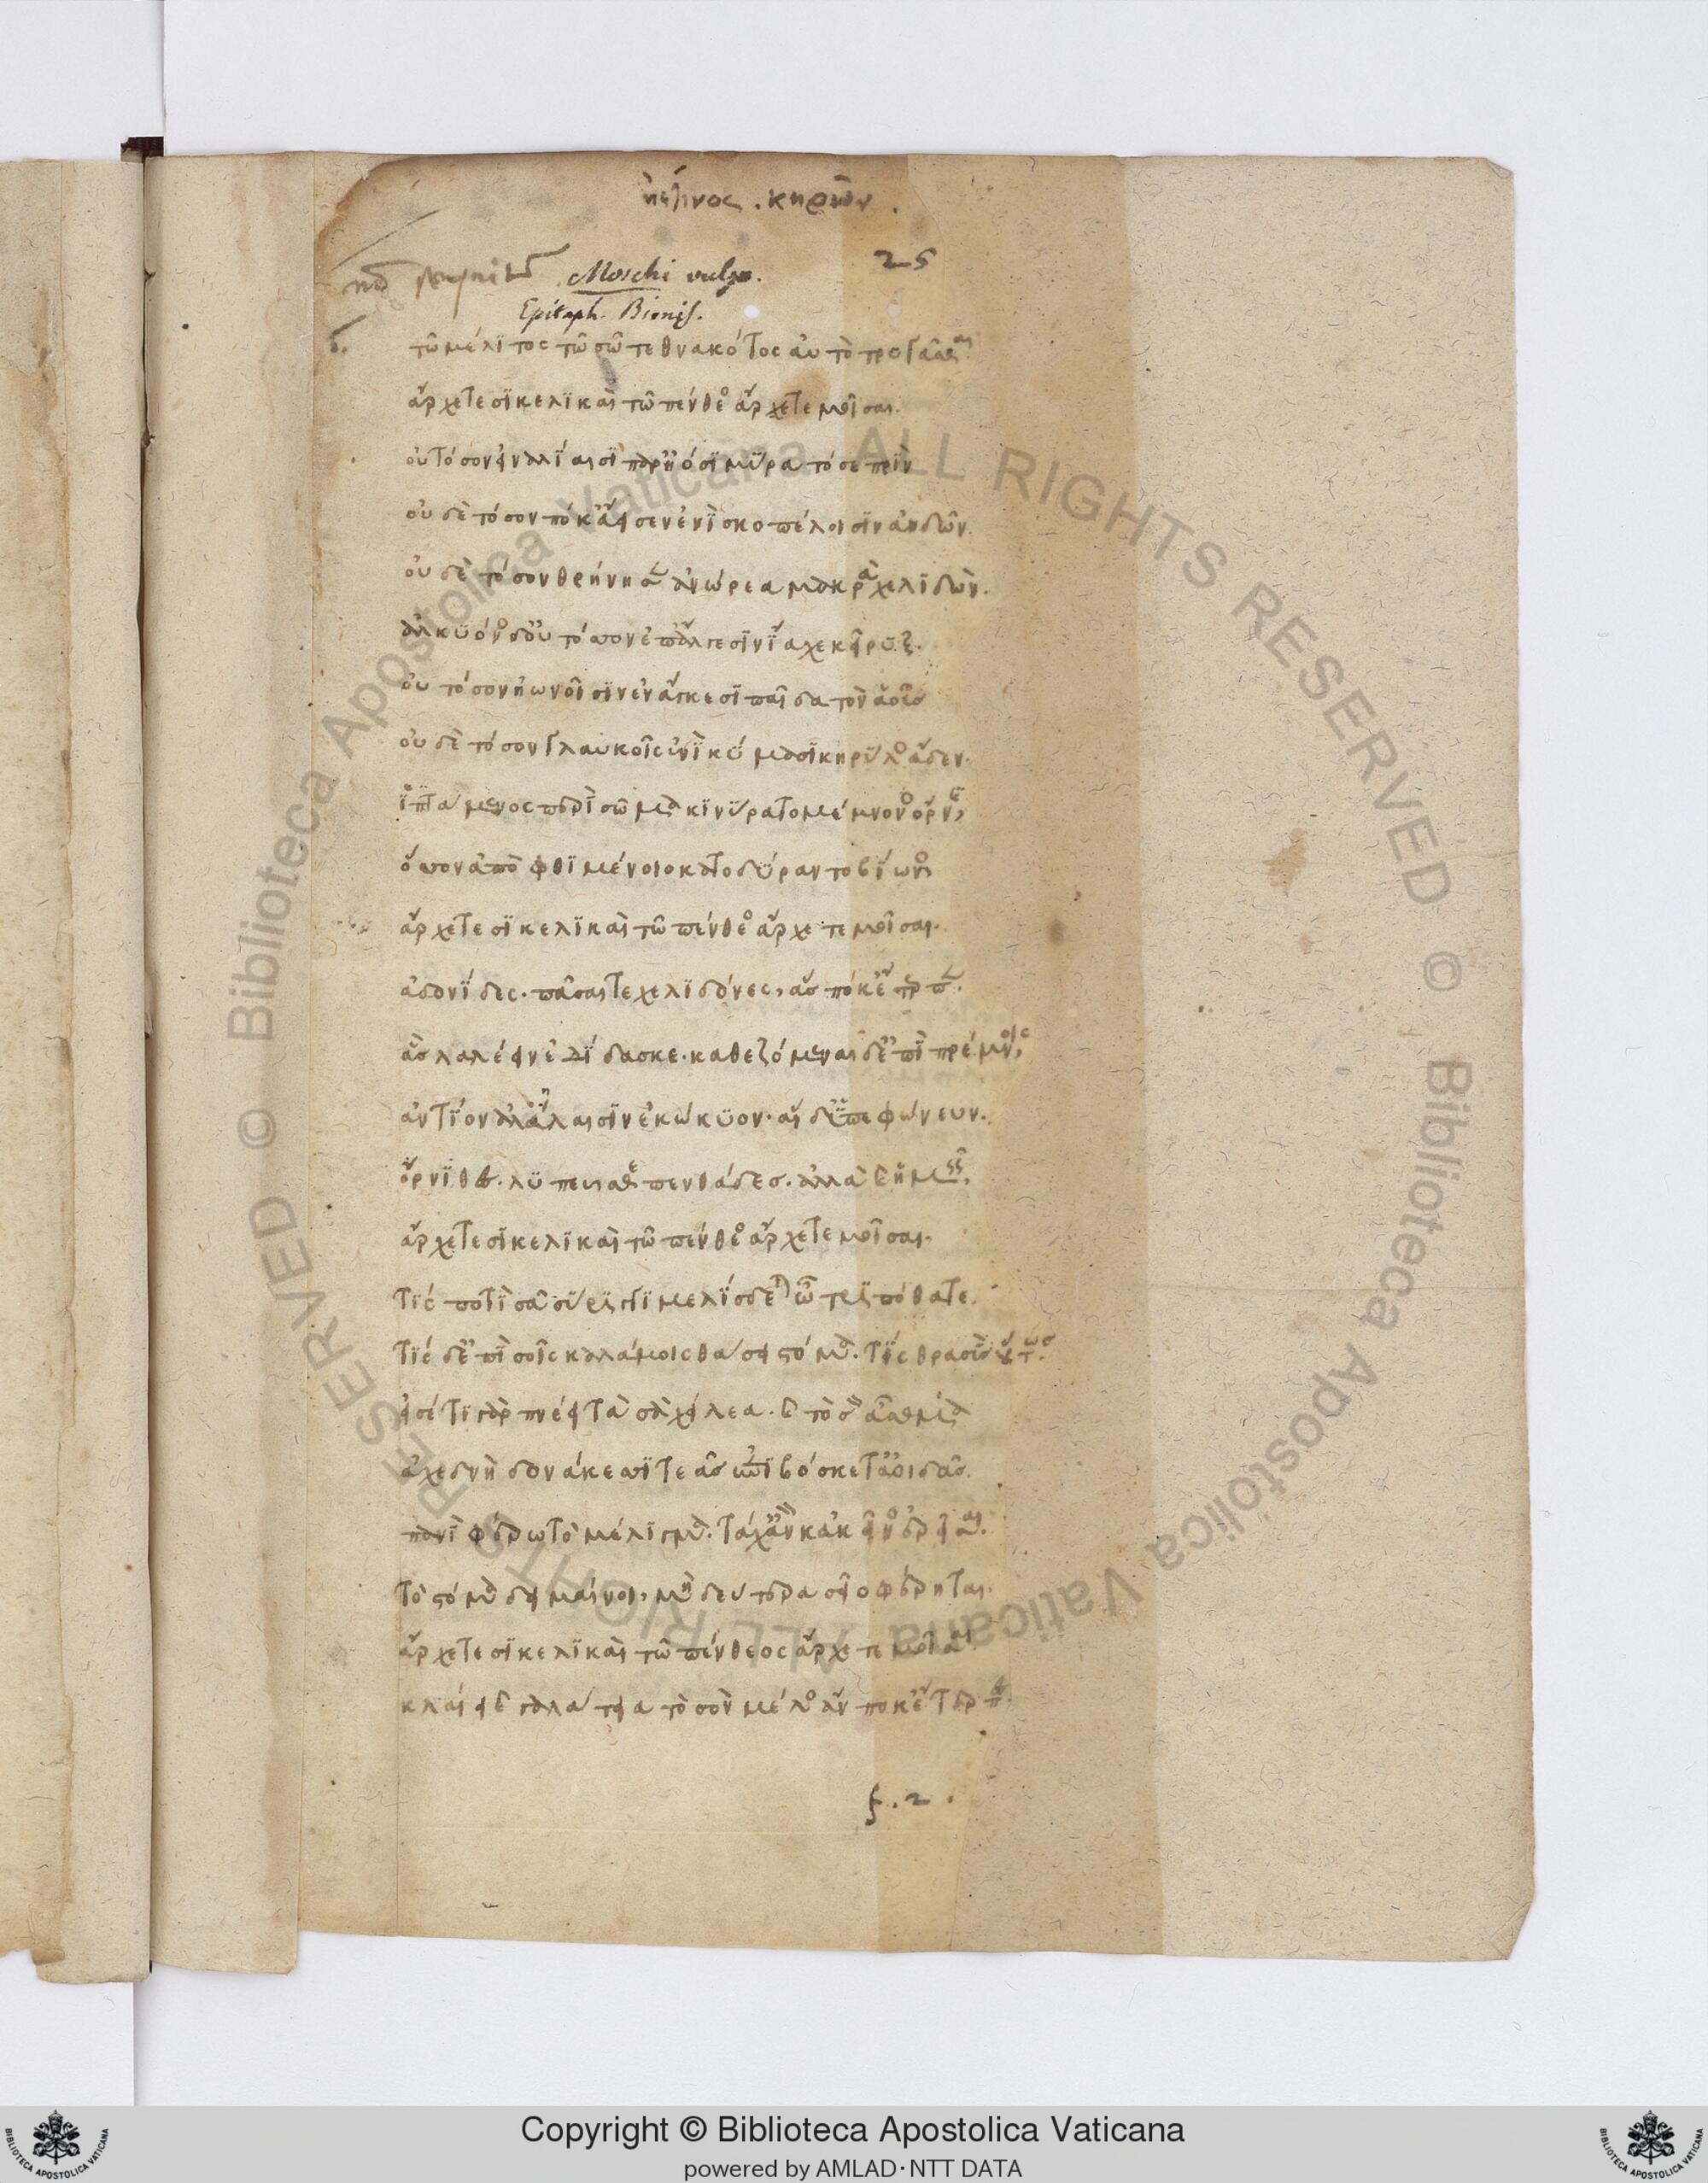 κηρῶν.
25
Moschi vulgo.
Epitaph. Bionis.
τῶ μέλιτος τῶ σῶ τεθνακότος αὐτὸ τρυγᾶσαι
ἄρχετε σϊκελϊκαὶ τῶ πένθεος ἄρχετε μοῖσαι.
οὐ τόσον εἰναλίαισϊ παρ' ἠόσϊ μύρατό σε πρὶν
οὐδὲ τόσον πόκ' ἄεισεν ἐνὶ σκοπέλοισϊν ἀηδών.
οὐδὲ τόσον θρήνησεν ἀν' ώρεα μακρὰ χελϊδών.
ἀλκϋόνος δ' οὐ τόσσον ἐπ' ἄλγεσϊν ἴαχε κῆρϋξ.
οὐ τόσον ἠώνοῖσϊν ἐν ἄγκεσϊ παῖδα τὸν ἀοῦσ
οὐδὲ τόσον γλαυκοῖς ἐνὶ κύμασϊ κηρύλος ἄδεν.
ϊπτάμενος περὶ σῶμα κϊνύρατο μέμνονος ὄρνϊς
ὅσσον ἀποφθϊμένοιο κατοδύραντο βίωνος
ἄρχετε σϊκελϊκαὶ τῶ πένθεος ἄρχετε μοῖσαι.
ἀδονίδες. πᾶσαι τε χελϊδόνες, ἃσ πόκ' ἔτερπεν.
ἃσ λαλέειν ἐδίδασκε. καθεζόμεναι δ' ἐπὶ πρέμνοις
ἀντίον ἀλλάλαισϊν ἐκώκϋον. αἱ δ' ὑπεφώνευν.
ὄρνϊθες. λϋπεῖσθε πενθάδεσ. ἀλλὰ καὶ ἡμεῖς.
ἄρχετε σϊκελϊκαὶ τῶ πένθεος ἄρχετε μοῖσαι.
τίς ποτὶ σᾶ σύριγγϊ μελίσδεται ὦ τριπόθατε.
τίς δ' ἐπὶ σοῖς καλάμοις θάσει στόμα. τίς θρασὺσ οὕτωσ
εἰσέτι γὰρ πνέει τὰ σὰ χείλεα. καὶ τὸ σὸν ἆσθμα
ἀχὼ δ' ἐν δονάκεσσϊ τεὰσ ἐπϊβόσκετ' ἀοιδᾶσ.
πανὶ φέρω τὸ μέλϊγμα. τάχ' ἂν κἀκεῖνος ἐρεῖσαι.
τὸ στόμα δειμαίνοι, μὴ δεύτερα σεῖο φέρηται.
ἄρχετε σϊκελϊκαὶ τῶ πένθεος ἄρχετε μοῖσαι
κλαίει καὶ γαλάτεια τὸ σὸν μέλος ἅν ποκ' ἔτερπες.
f. 2.
Copyright © Biblioteca Apostolica Vaticana
powered by AMLAD·NTT DATA